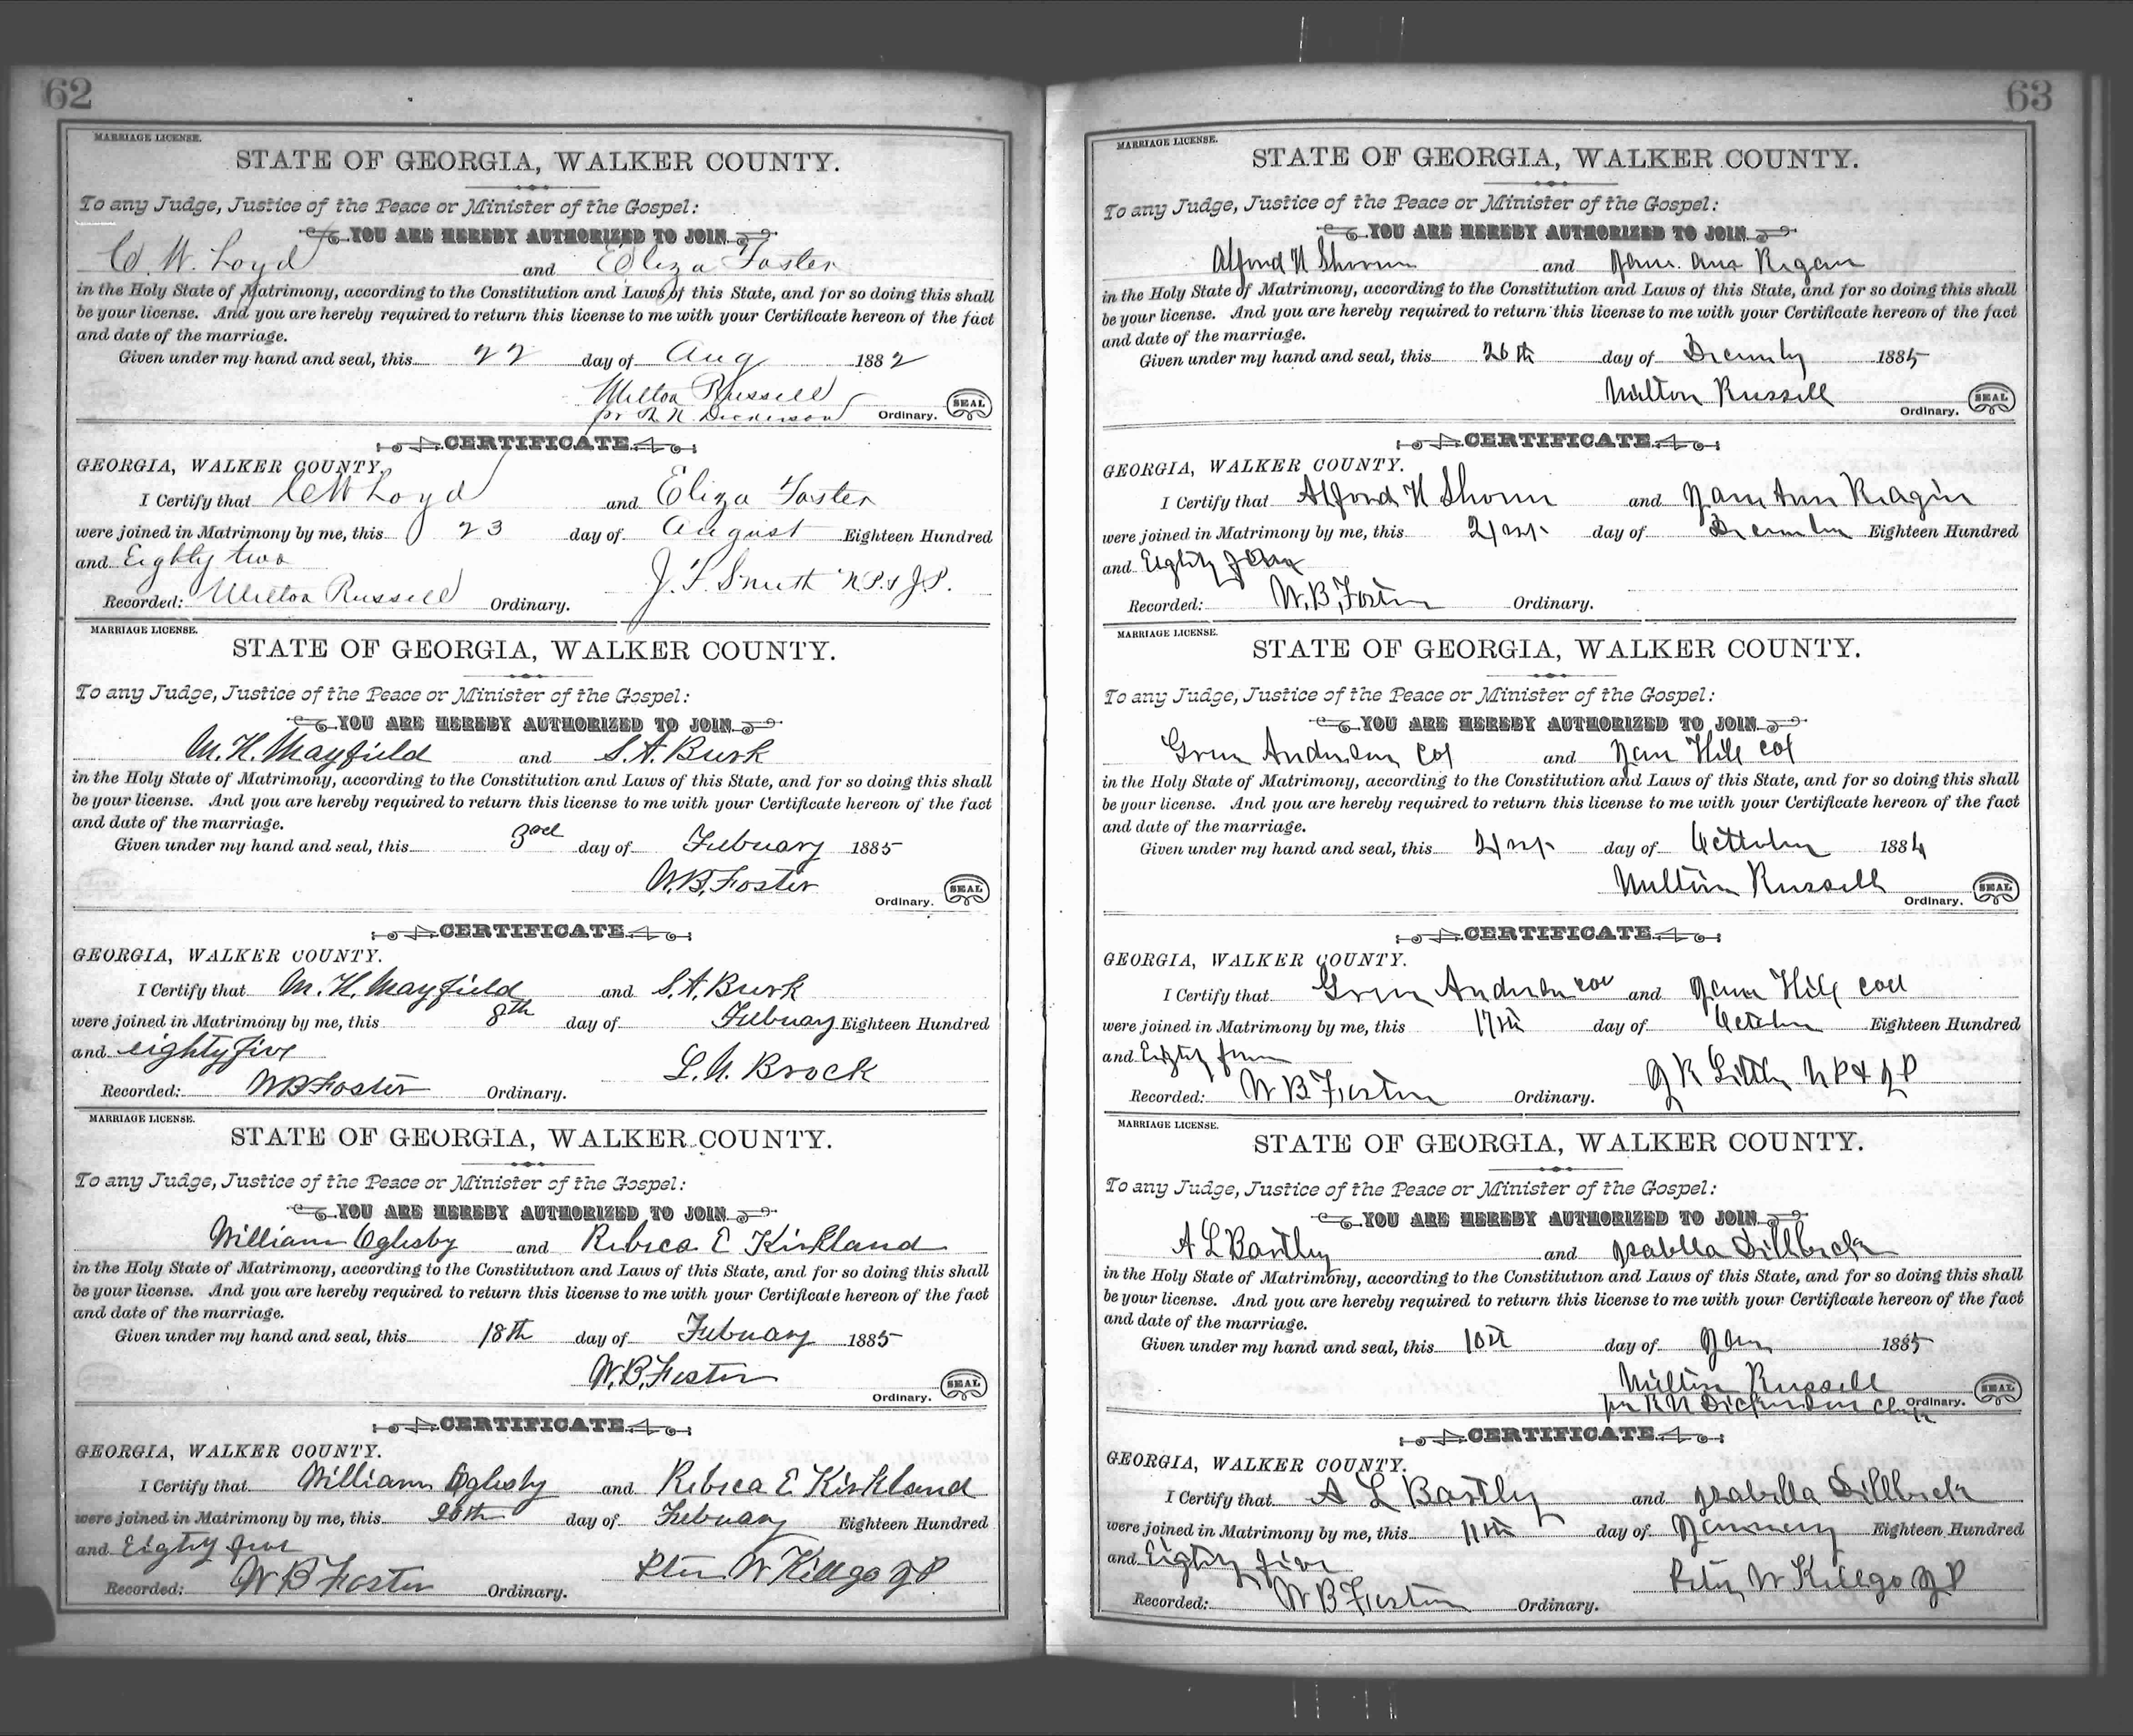 62
MARRIAGE LICENSE.
STATE OF GEORGIA, WALKER COUNTY.
To any Judge, Justice of the Peace or Minister of the Gospel:
YOU ARE HEREBY AUTHORIZED TO JOIN
C. W. Loyd and Eliza Foster
in the Holy State of Matrimony, according to the Constitution and Laws of this State, and for so doing this shall
be your license. And you are hereby required to return this license to me with your Certificate hereon of the fact
and date of the marriage.
Given under my hand and seal, this 22 day of Aug 1882
Milton Russell
pr R N Dickerson Ordinary. SEAL
CERTIFICATE
GEORGIA, WALKER COUNTY.
I Certify that C W Loyd and Eliza Foster
were joined in Matrimony by me, this 23 day of August Eighteen Hundred
and Eighty two
J. F. Smith N.P. & J.P.
Recorded: Milton Russell Ordinary.
MARRIAGE LICENSE.
STATE OF GEORGIA, WALKER COUNTY.
To any Judge, Justice of the Peace or Minister of the Gospel:
YOU ARE HEREBY AUTHORIZED TO JOIN
M. H. Mayfield and S. A. Burk
in the Holy State of Matrimony, according to the Constitution and Laws of this State, and for so doing this shall
be your license. And you are hereby required to return this license to me with your Certificate hereon of the fact
and date of the marriage.
Given under my hand and seal, this 3rd day of Febuary 1885
W. B. Foster
Ordinary. SEAL
CERTIFICATE
GEORGIA, WALKER COUNTY.
I Certify that M. H. Mayfield and S. A. Burk
were joined in Matrimony by me, this 8th day of Febuary Eighteen Hundred
and eighty five
L. N. Brock
Recorded: W B Foster Ordinary.
MARRIAGE LICENSE.
STATE OF GEORGIA, WALKER COUNTY.
To any Judge, Justice of the Peace or Minister of the Gospel:
YOU ARE HEREBY AUTHORIZED TO JOIN
William Oglesby and Rebeca E Kirkland
in the Holy State of Matrimony, according to the Constitution and Laws of this State, and for so doing this shall
be your license. And you are hereby required to return this license to me with your Certificate hereon of the fact
and date of the marriage.
Given under my hand and seal, this 18th day of Febuary 1885
W. B. Foster
Ordinary. SEAL
CERTIFICATE
GEORGIA, WALKER COUNTY.
I Certify that William Oglesby and Rebeca E Kirkland
were joined in Matrimony by me, this 20th day of Febuary Eighteen Hundred
and Eighty five
W Killgo J P
Recorded: W B Foster Ordinary.
63
MARRIAGE LICENSE.
STATE OF GEORGIA, WALKER COUNTY.
To any Judge, Justice of the Peace or Minister of the Gospel:
YOU ARE HEREBY AUTHORIZED TO JOIN
Alford H and Jane Ann Regan
in the Holy State of Matrimony, according to the Constitution and Laws of this State, and for so doing this shall
be your license. And you are hereby required to return this license to me with your Certificate hereon of the fact
and date of the marriage.
Given under my hand and seal, this 26th day of 1885
Milton Russell
Ordinary. SEAL
CERTIFICATE
GEORGIA, WALKER COUNTY.
I Certify that Alford H and Jane Ann Ragin
were joined in Matrimony by me, this day of December Eighteen Hundred
and Eighty
Recorded: W. B. Foster Ordinary.
MARRIAGE LICENSE.
STATE OF GEORGIA, WALKER COUNTY.
To any Judge, Justice of the Peace or Minister of the Gospel:
YOU ARE HEREBY AUTHORIZED TO JOIN
Green Anderson Col and Jane Hill Col
in the Holy State of Matrimony, according to the Constitution and Laws of this State, and for so doing this shall
be your license. And you are hereby required to return this license to me with your Certificate hereon of the fact
and date of the marriage.
Given under my hand and seal, this day of October 1884
Milton Russell
Ordinary. SEAL
CERTIFICATE
GEORGIA, WALKER COUNTY.
I Certify that Green Anderson col and Jane Hill col
were joined in Matrimony by me, this 17th day of October Eighteen Hundred
and Eighty four
J R Little N P & J P
Recorded: W B Foster Ordinary.
MARRIAGE LICENSE.
STATE OF GEORGIA, WALKER COUNTY.
To any Judge, Justice of the Peace or Minister of the Gospel:
YOU ARE HEREBY AUTHORIZED TO JOIN
A L Bartley and Isabella Dillbeck
in the Holy State of Matrimony, according to the Constitution and Laws of this State, and for so doing this shall
be your license. And you are hereby required to return this license to me with your Certificate hereon of the fact
and date of the marriage.
Given under my hand and seal, this 10th day of Jan 1885
Milton Russell
per R N Dickerson Clerk Ordinary. SEAL
CERTIFICATE
GEORGIA, WALKER COUNTY.
I Certify that A L Bartley and Isabella Dillbeck
were joined in Matrimony by me, this 11th day of January Eighteen Hundred
and Eighty five
Peter W Killgo J P
Recorded: W B Foster Ordinary.